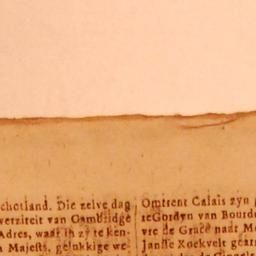 chotland. Die zelve dag
verziteit van Cambridge
Adres, waar in zy te ken-
n Majest. gelukkige we-
Omtrent Calais zyn
te Gordyn van Bourde
vre de Grace naar Mo
Janste Xoekvelt gearr